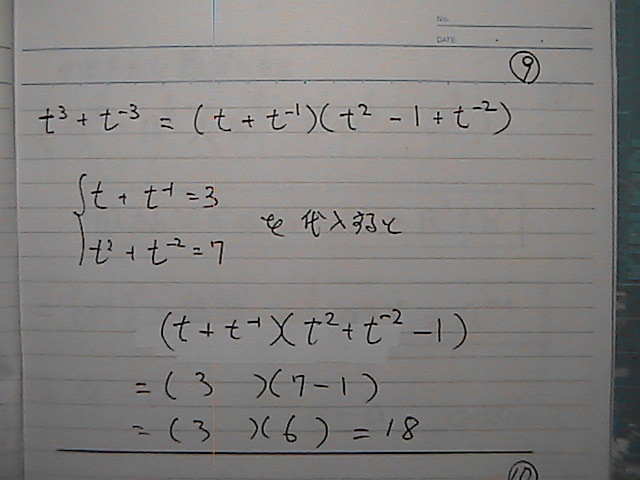 No.
DATE
⑨
t³ + t⁻³ = (t + t⁻¹)(t² - 1 + t⁻²)
t + t⁻¹ = 3
を代入すると
t² + t⁻² = 7
(t + t⁻¹)(t² + t⁻² - 1)
= (3 )(7 - 1)
= (3 )(6) = 18
⑩